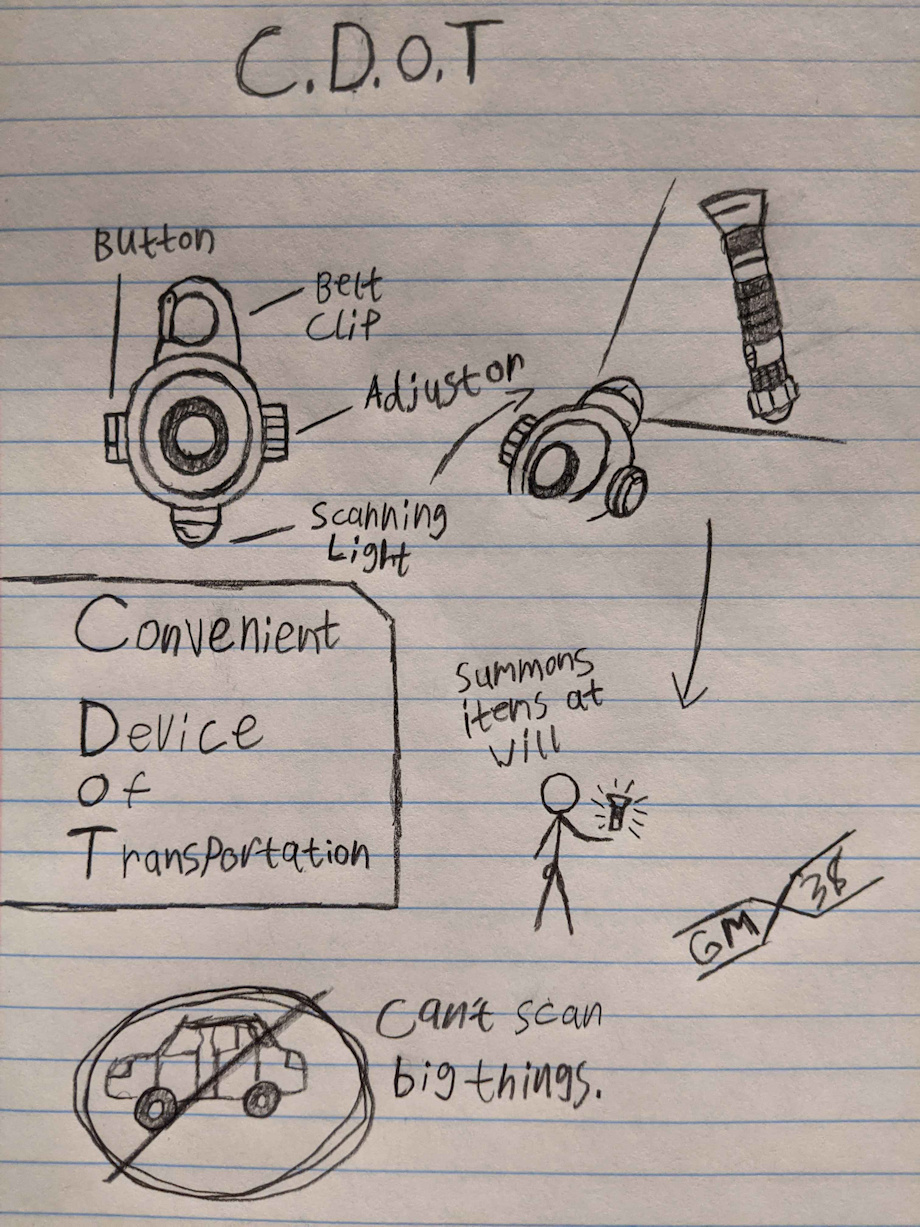 C.D.O.T
Button
Belt
Clip
Adjustor
Scanning
Light
Convenient
Device
Of
Transportation
Summons
itens at
will
GM 38
Can't scan
big things.